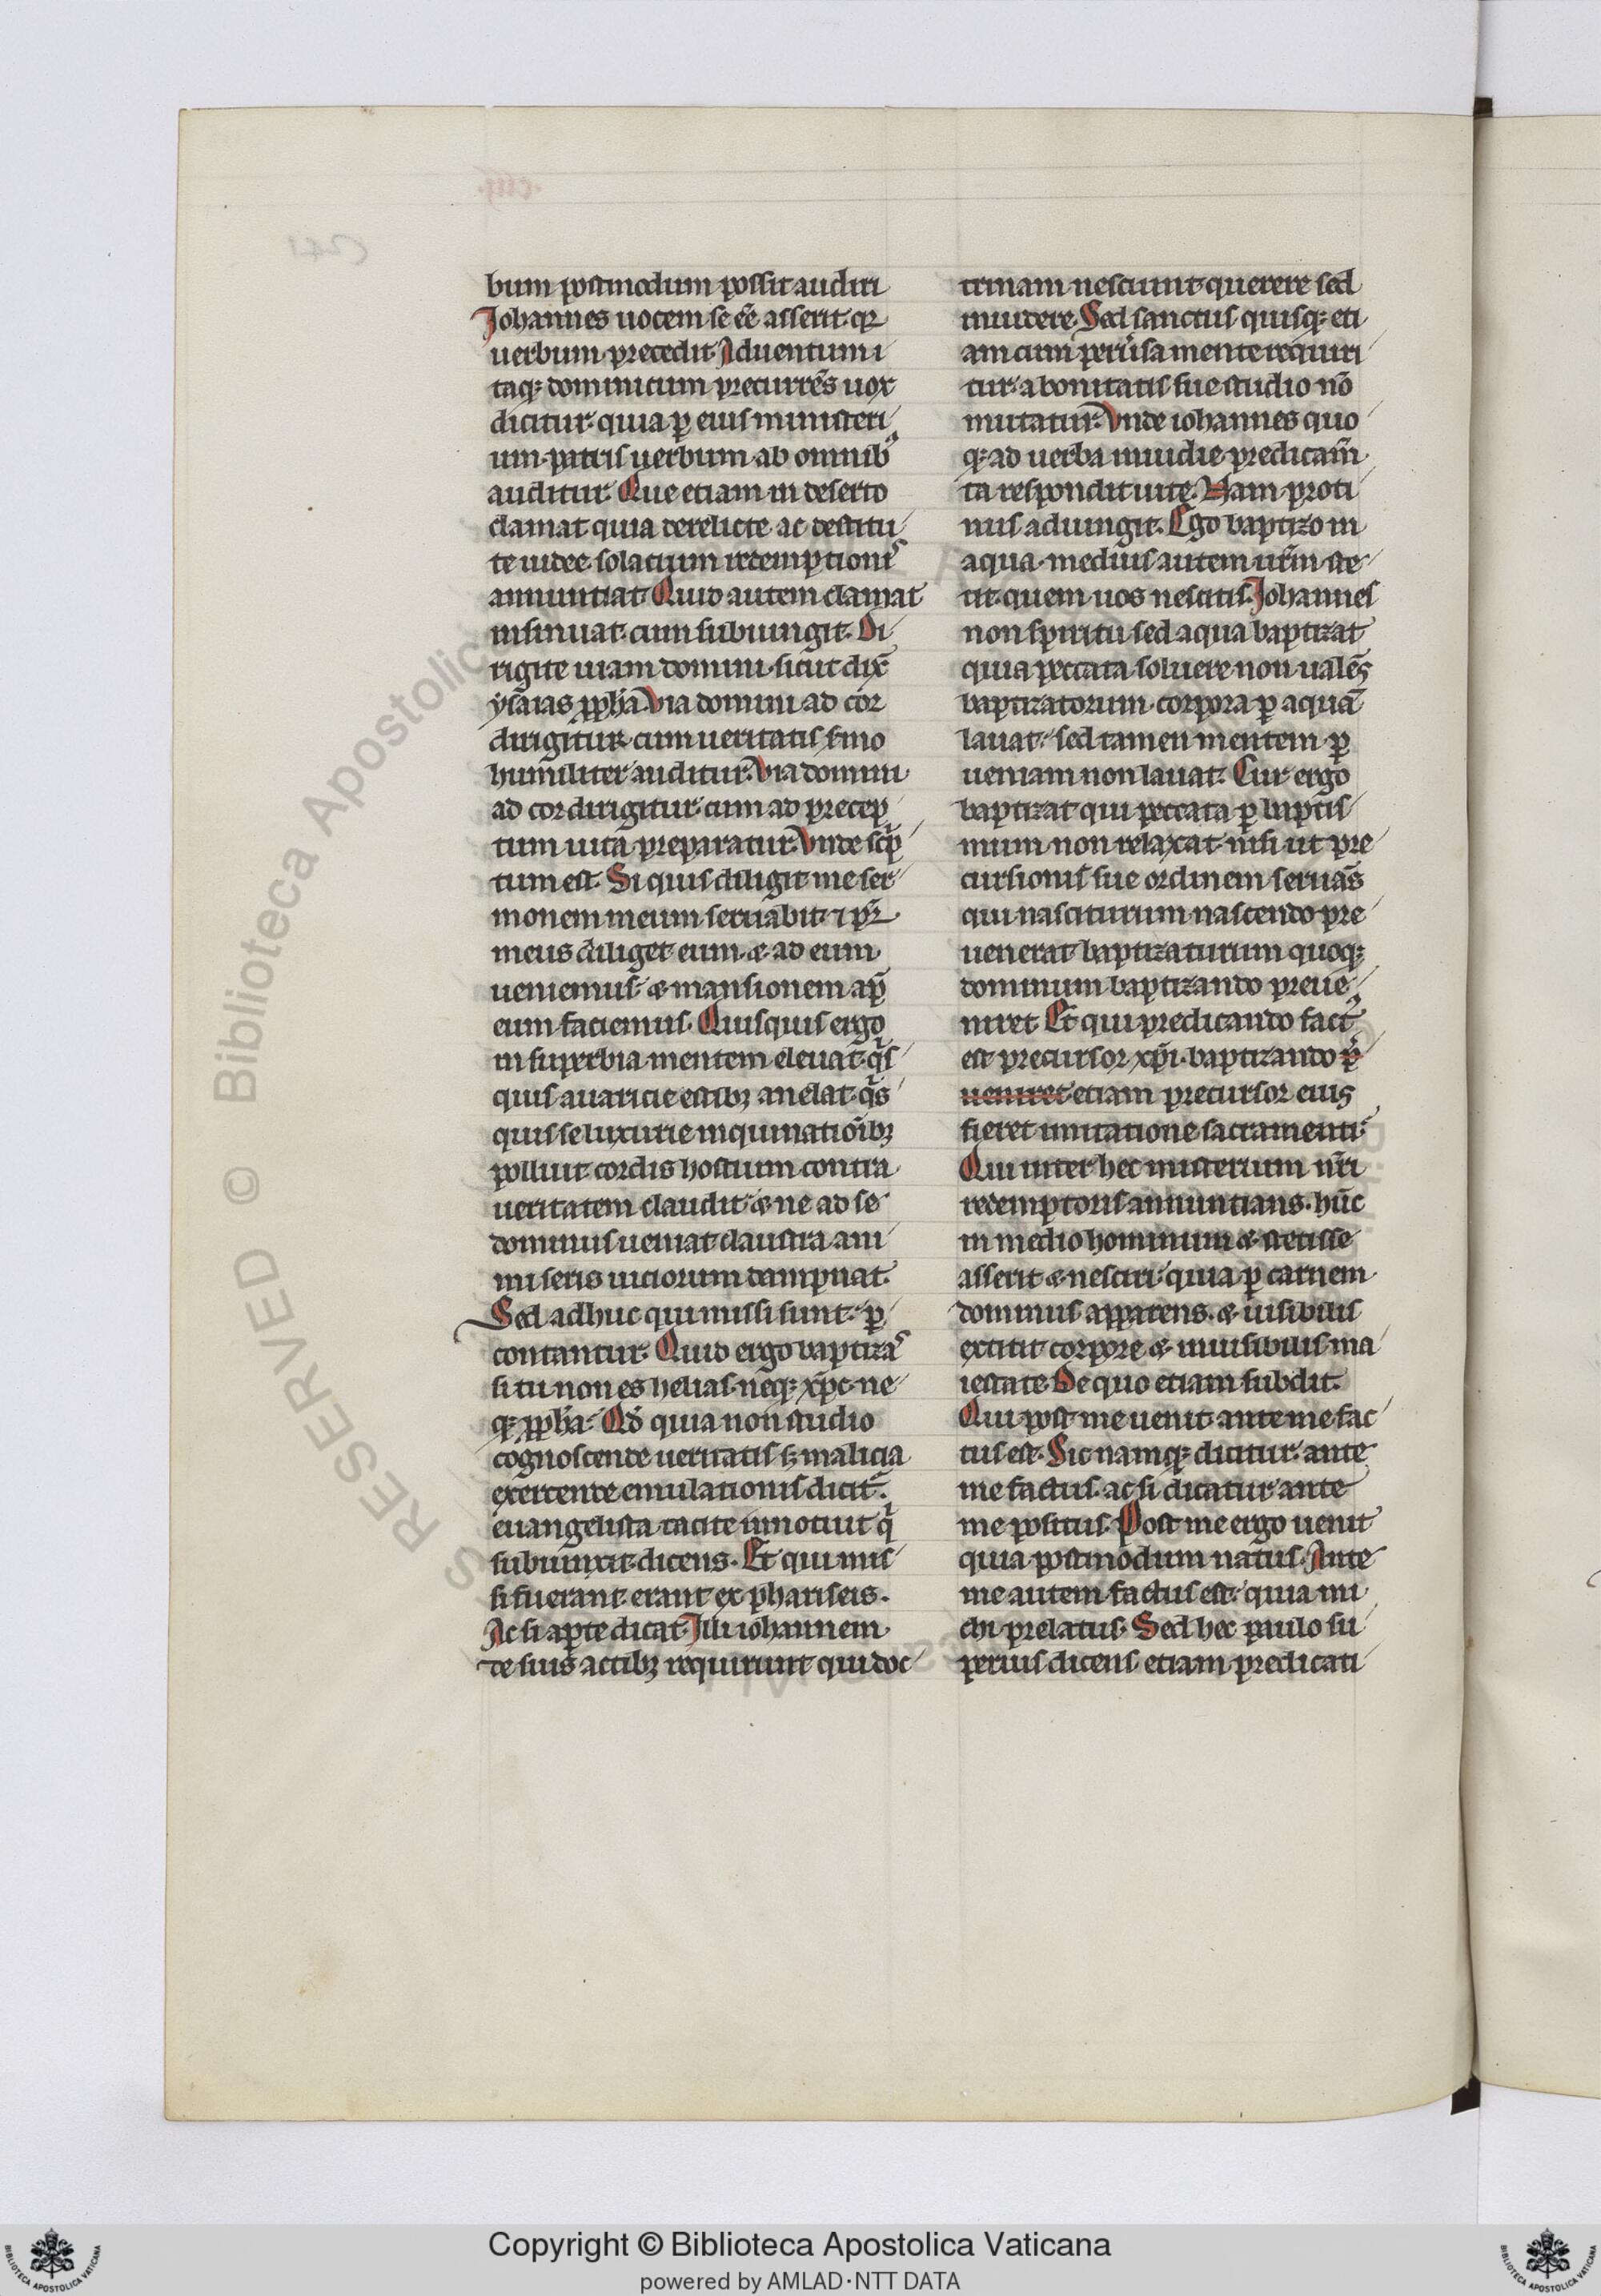 bum postmodum possit audiri
Johannes uocem se eē asserit. qꝛ
uerbum precedit. Aduentum i
taqꝫ dominicum precurrēs uox
dicitur. quia ꝑ eius ministeri
um. patris uerbum ab omnibꝰ
auditur. Que etiam in deserto
clamat quia derelicte. ac destitu
te iudee. solatium redemptionis
annuntiat. Quid autem clamat
insinuat. cum subiungit. Di
rigite uiam domini. sicut dix̄
ysaias ꝓpha. Via domini ad cor
dirigitur. cum ueritatis s̄mo
humiliter auditur. Via domini
ad cor dirigitur. cum ad precep
tum uita preparatur. Vnde sc̄p
tum est. Si quis diligit me ser
monem meum seruabit. ⁊ pr̄
meus diliget eum. & ad eum
ueniemus. & mansionem ap̄
eum faciemus. Quisquis ergo
in superbia mentem eleuat. qͥs
quis auaricie estibꝫ anelat. qͥs
quis se luxurie inquinatioībꝫ
polluit cordis hostium contra
ueritatem claudit. & ne ad se
dominus ueniat. claustra ani
mi seris uiciorum dampnat.
Sed adhuc qui missi sunt. ꝑ
contantur. Quid ergo baptizas
si tu non es helias. neqꝫ xp̄c. ne
qꝫ ꝓpha. Qd̄ quia non studio
cognoscende ueritatis sꝫ malicia
exercende emulationis dicit᷑.
euangelista tacite innotuit qͥ
subiunxit dicens. Et qui mis
si fuerant. erant ex phariseis.
Ac si aꝑte dicat. Illi iohannem
de suis actibꝫ requirunt qui doc
trinam nesciunt querere sed
inuidere. Sed sanctus quisqꝫ eti
am cum peruersa mente requiri
tur. a bonitatis sue studio nō
mutatur. Vnde iohannes quo
qꝫ ad uerba inuidie predicam̄
ta respondit uite. Nam proti
nus adiungit. Ego baptizo in
aqua. medius autem ur̄m ste
tit. quem uos nescitis. Johannes
non spiritu sed aqua baptizat
quia peccata soluere non ualēs
baptizatorum. corpora ꝑ aquā
lauat. sed tamen mentem ꝑ
ueniam non lauat. Cur ergo
baptizat qui peccata ꝑ baptis
mum non relaxat. nisi ut pre
cursionis sue ordinem seruās
qui nasciturum nascendo pre
uenerat baptizaturum quoqꝫ
dominum baptizando preue
niret. Et qui predicando factꝰ
est precursor xp̄i. baptizando p̄
ueniret etiam precursor eius
fieret imitatione sacramenti.
Qui inter hec misterium nr̄i
redemptoris annuntians. hūc
in medio hominum & stetisse
asserit & nesciri. quia ꝑ carnem
dominus apparens. & uisibilis
extitit corpore & inuisibilis ma
iestate. De quo etiam subdit.
Qui post me uenit. ante me fac
tus est. Sic namqꝫ dicitur. ante
me factus. ac si dicatur ante
me positus. Post me ergo uenit
quia postmodum natus. Ante
me autem factus est. quia mi
chi prelatus. Sed hec paulo su
perius dicens etiam predicati
RESERVED © Biblioteca Apostolica
Copyright © Biblioteca Apostolica Vaticana
powered by AMLAD·NTT DATA